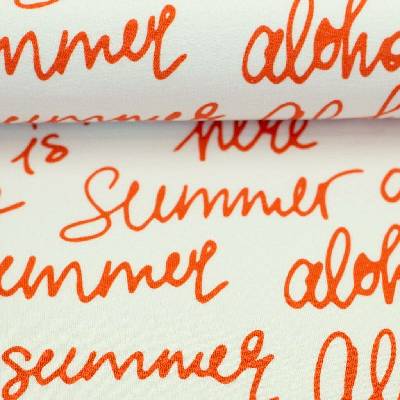 summer aloha
summer
is here
summer
summer aloha
summer